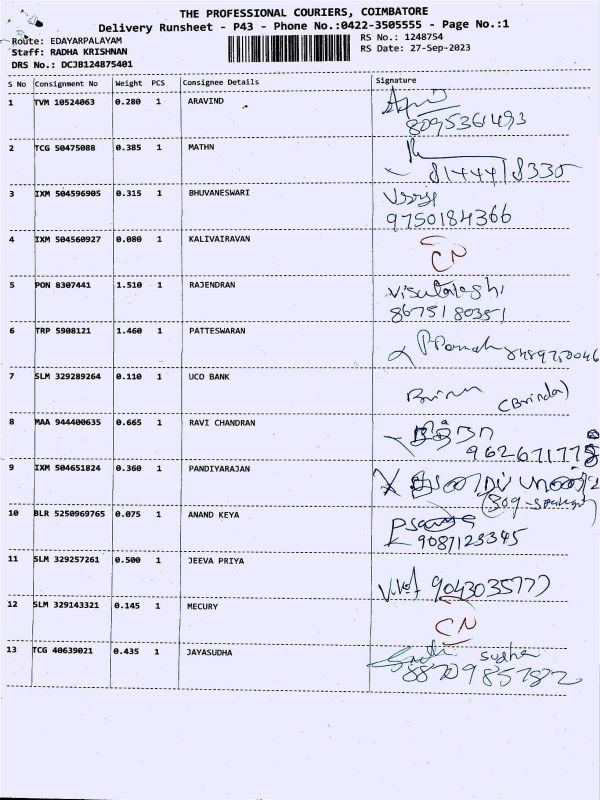 THE PROFESSIONAL COURIERS, COIMBATORE
Delivery Runsheet - P43 - Phone No.:0422-3505555 - Page No.:1
Route: EDAYARPALAYAM RS No.: 1248754
Staff: RADHA KRISHNAN RS Date: 27-Sep-2023
DRS No.: DCJB124875401
S No Consignment No Weight PCS Consignee Details Signature
1 TVM 10524063 0.280 1 ARAVIND
8095361493
2 TCG 50475088 0.385 1 MATHN
3 IXM 504596905 0.315 1 BHUVANESWARI
9750184366
4 IXM 504560927 0.080 1 KALIVAIRAVAN CN
5 PON 8307441 1.510 1 RAJENDRAN
8675180351
6 TRP 5908121 1.460 1 PATTESWARAN
7 SLM 329289264 0.110 1 UCO BANK (Brinda)
8 MAA 944400635 0.665 1 RAVI CHANDRAN
9 IXM 504651824 0.360 1 PANDIYARAJAN
10 BLR 5250969765 0.075 1 ANAND KEYA
9087123345
11 SLM 329257261 0.500 1 JEEVA PRIYA
12 SLM 329143321 0.145 1 MECURY CN
13 TCG 40639021 0.435 1 JAYASUDHA